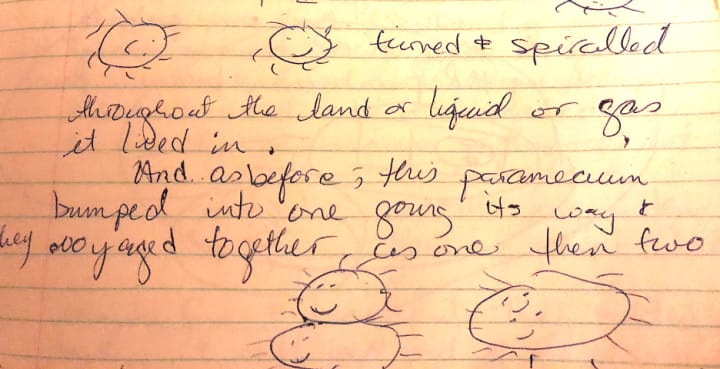 turned & spiralled
throughout the land or liquid or gas
it lived in.
And as before, this paramecium
bumped into one going its way &
they voyaged together, as one then two